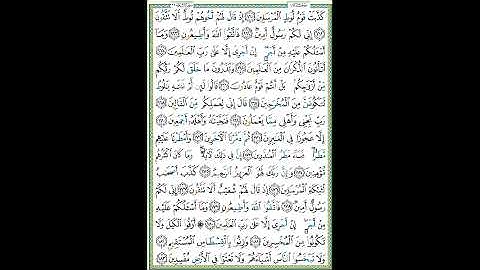 كَذَّبَتْ قَوْمُ لُوطٍ ٱلْمُرْسَلِينَ ١٦٠ إِذْ قَالَ لَهُمْ أَخُوهُمْ لُوطٌ أَلَا تَتَّقُونَ
١٦١ إِنِّى لَكُمْ رَسُولٌ أَمِينٌ ١٦٢ فَٱتَّقُوا۟ ٱللَّهَ وَأَطِيعُونِ ١٦٣ وَمَآ
أَسْـَٔلُكُمْ عَلَيْهِ مِنْ أَجْرٍ إِنْ أَجْرِىَ إِلَّا عَلَىٰ رَبِّ ٱلْعَـٰلَمِينَ ١٦٤
أَتَأْتُونَ ٱلذُّكْرَانَ مِنَ ٱلْعَـٰلَمِينَ ١٦٥ وَتَذَرُونَ مَا خَلَقَ لَكُمْ رَبُّكُم
مِّنْ أَزْوَٰجِكُم بَلْ أَنتُمْ قَوْمٌ عَادُونَ ١٦٦ قَالُوا۟ لَئِن لَّمْ تَنتَهِ يَـٰلُوطُ
لَتَكُونَنَّ مِنَ ٱلْمُخْرَجِينَ ١٦٧ قَالَ إِنِّى لِعَمَلِكُم مِّنَ ٱلْقَالِينَ ١٦٨
رَبِّ نَجِّنِى وَأَهْلِى مِمَّا يَعْمَلُونَ ١٦٩ فَنَجَّيْنَـٰهُ وَأَهْلَهُۥٓ أَجْمَعِينَ ١٧٠
إِلَّا عَجُوزًا فِى ٱلْغَـٰبِرِينَ ١٧١ ثُمَّ دَمَّرْنَا ٱلْـَٔاخَرِينَ ١٧٢ وَأَمْطَرْنَا عَلَيْهِم
مَّطَرًا فَسَآءَ مَطَرُ ٱلْمُنذَرِينَ ١٧٣ إِنَّ فِى ذَٰلِكَ لَـَٔايَةً وَمَا كَانَ أَكْثَرُهُم
مُّؤْمِنِينَ ١٧٤ وَإِنَّ رَبَّكَ لَهُوَ ٱلْعَزِيزُ ٱلرَّحِيمُ ١٧٥ كَذَّبَ أَصْحَـٰبُ
لْـَٔيْكَةِ ٱلْمُرْسَلِينَ ١٧٦ إِذْ قَالَ لَهُمْ شُعَيْبٌ أَلَا تَتَّقُونَ ١٧٧ إِنِّى لَكُمْ
رَسُولٌ أَمِينٌ ١٧٨ فَٱتَّقُوا۟ ٱللَّهَ وَأَطِيعُونِ ١٧٩ وَمَآ أَسْـَٔلُكُمْ عَلَيْهِ
مِنْ أَجْرٍ إِنْ أَجْرِىَ إِلَّا عَلَىٰ رَبِّ ٱلْعَـٰلَمِينَ ١٨٠ ۞ أَوْفُوا۟ ٱلْكَيْلَ وَلَا
تَكُونُوا۟ مِنَ ٱلْمُخْسِرِينَ ١٨١ وَزِنُوا۟ بِٱلْقِسْطَاسِ ٱلْمُسْتَقِيمِ ١٨٢
وَلَا تَبْخَسُوا۟ ٱلنَّاسَ أَشْيَآءَهُمْ وَلَا تَعْثَوْا۟ فِى ٱلْأَرْضِ مُفْسِدِينَ ١٨٣